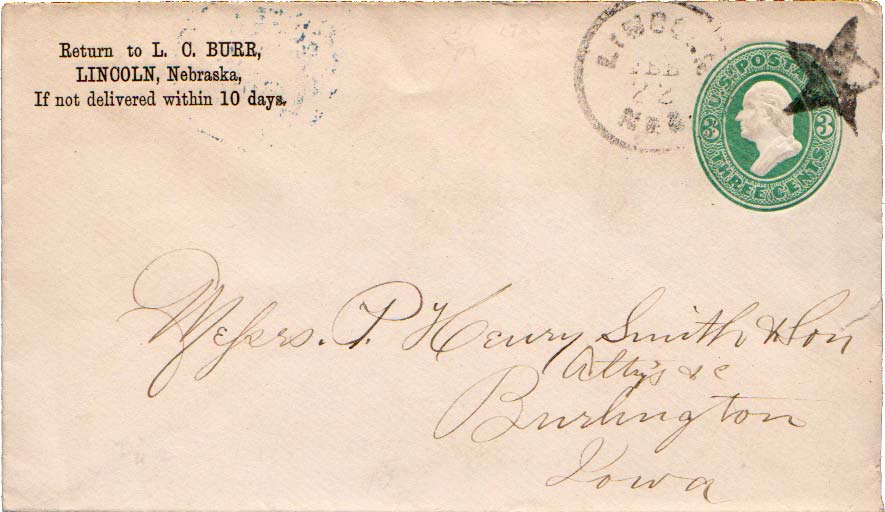 Return to L. C. BURR,
LINCOLN, Nebraska,
If not delivered within 10 days.
LINCOLN
FEB
22
NEB
U.S. POSTAGE
3 3
THREE CENTS
Messrs. P. Henry Smith & Son
Atty's &c
Burlington
Iowa